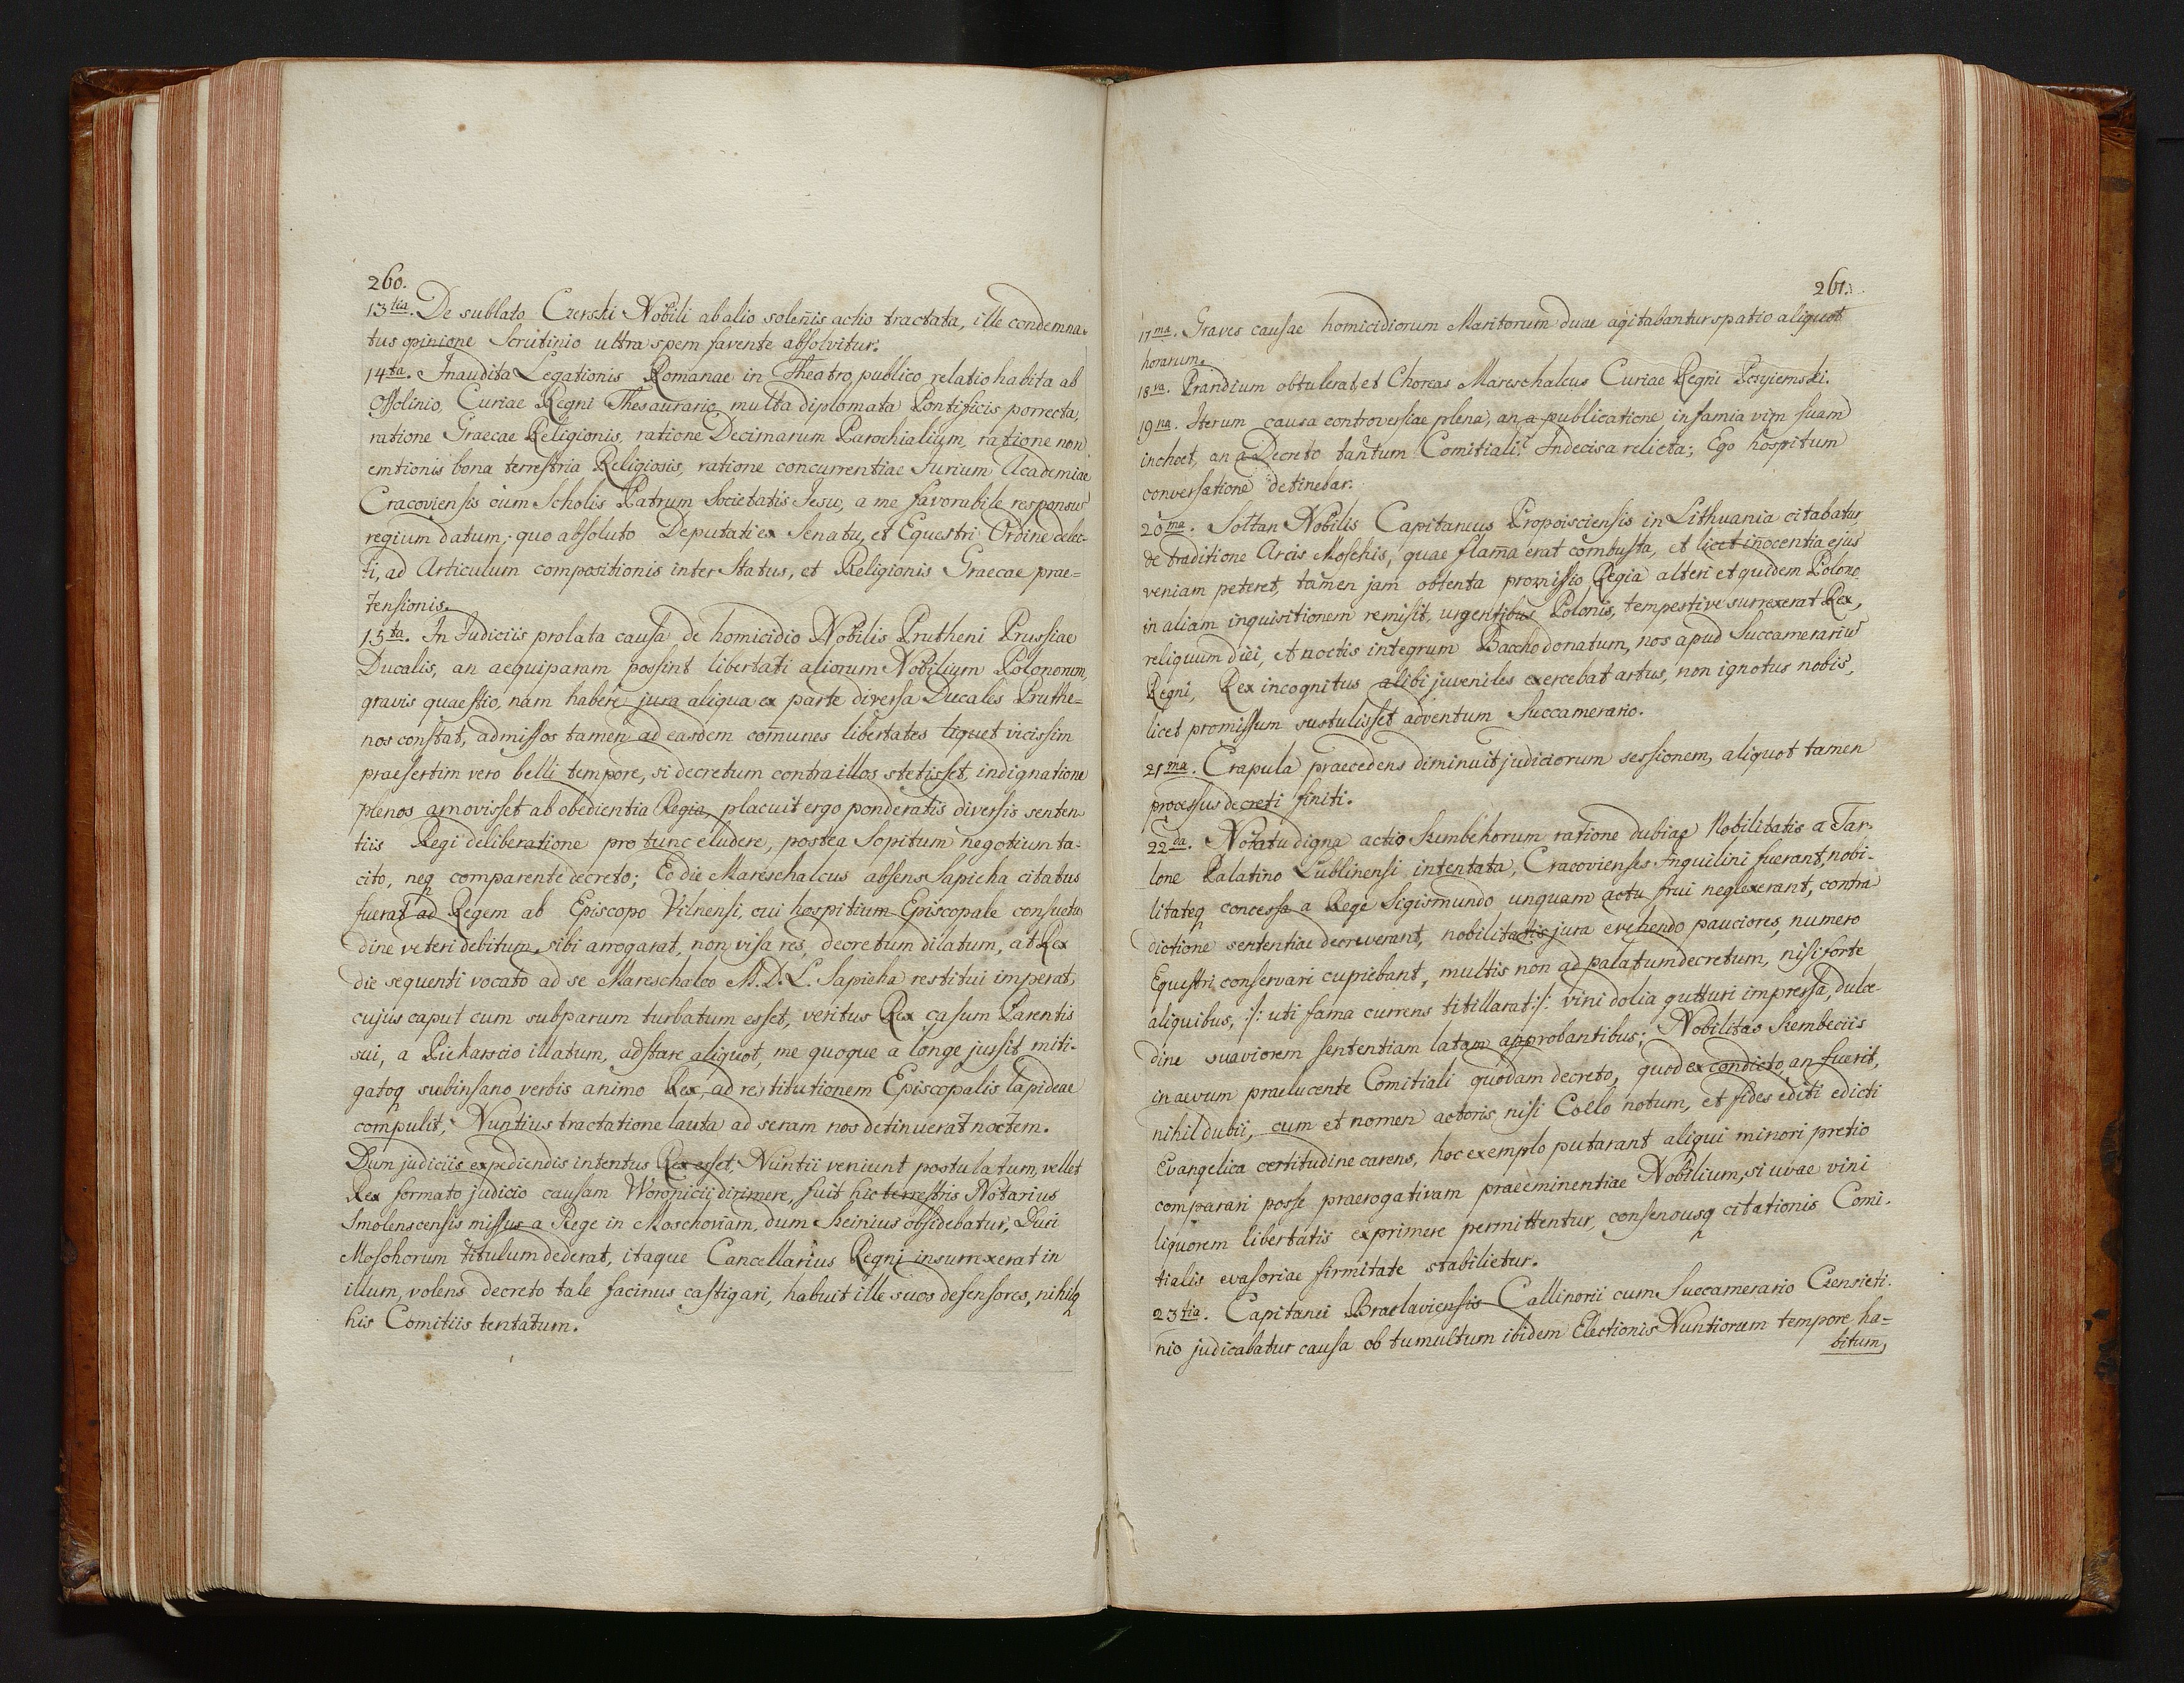 260.
13tia. De sublato Czerski Nobili ab alio soleñis actio tractata, ille condemna-
tus opinione Scrutinio ultra spem favente absolvitur.
14ta. Inaudita Legationis Romanae in Theatro publico relatio habita ab
Ossolinio, Curiae Regni Thesaurario, multa diplomata Pontificis porrecta,
ratione Graecae Religionis, ratione Decimarum Parochialium, ratione non
emtionis bona terrestria Religiosis, ratione concurrentiae Jurium Academiae
Cracoviensis cum Scholis Patrum Societatis Jesu, a me favorabile responsũ
regium datum; quo absoluto Deputati ex Senatu, et Equestri Ordine delec-
ti, ad Articulum compositionis inter Status, et Religionis Graecae prae=
tensionis.
15ta. In Judiciis prolata causa de homicidio Nobilis Prutheni Prussiae
Ducalis, an aequiparam possint libertati aliorum Nobilium Polonorum,
gravis quaestio, nam habere jura aliqua ex parte diversa Ducales Pruthe=
nos constat, admissos tamen ad easdem comunes libertates liquet vicissim
praesertim vero belli tempore, si decretum contra illos stetisset, indignatione
plenos amovisset ab obedientia Regia, placuit ergo ponderatis diversis senten
tiis Regi deliberatione pro tunc eludere, postea Sopitum negotium ta-
cito, neq comparente decreto; Eo die Mareschalcus absens Sapieha citatus
fuerat ad Regem ab Episcopo Vilnensi, cui hospitium Episcopale consuetu
dine veteri debitum, sibi arrogarat, non visa res, decretum dilatum, at Rex
die sequenti vocato ad se Mareschalco M. D. L. Sapieha restitui imperat,
cujus caput cum subparum turbatum esset, veritus Rex casum Parentis
sui, a Piekarscio illatum, adstare aliquot, me quoque a longe jussit miti-
gatoq subinsano verbis animo Rex, ad restitutionem Episcopalis lapideae
compulit, Nuntius tractatione lauta ad seram nos detinuerat noctem.
Dum judiciis expediendis intentus Rex esset, Nuntii veniunt postulatum, vellet
Rex formato judicio causam Woronicii dirimere, fuit hic terrestris Notarius
Smolenscensis missus a Rege in Moschoviam, dum Seinius obsidebatur, Duci
Moschorum titulum dederat, itaque Cancellarius Regni insurrexerat in
illum, volens decreto tale facinus castigari, habuit ille suos defensores, nihilq
his Comitiis tentatum.
261.
17ma. Graves causae homicidiorum Maritorum duae agitabantur spatio aliquot
horarum.
18va. Prandium obtulerat, et Choreas Mareschalcus Curiae Regni Przyiemski.
19na. Iterum causa controversiae plena, an a publicatione infamia vim suam
inchoet, an a Decreto tantum Comitiali? Indecisa relicta; Ego hospitum
conversatione detinebar.
20ma. Sołtan Nobilis Capitaneus Propoisciensis in Lithuania citabatur
de traditione Arcis Moschis, quae flam̃a erat combusta, et licet iñocentia ejus
veniam peteret, tamen jam obtenta promissio Regia alteri et quidem Polono
in aliam inquisitionem remisit, urgentibus Polonis, tempestive surrexerat Rex,
reliquum diei, et noctis integrum Baccho donatum, nos apud Succamerariũ
Regni, Rex incognitus alibi juveniles exercebat artus, non ignotus nobis,
licet promissum sustulisset adventum Succamerario.
21ma. Crapula praecedens diminuit judiciorum sessionem, aliquot tamen
processus decreti finiti.
22da. Notatu digna actio Sembekorum ratione dubiae Nobilitatis a Tar-
lone Palatino Lublinensi intentata, Cracovienses Inquilini fuerant, nobi-
litateq concessa a Rege Sigismundo unquam actu frui neglexerant, contra
dictione sententiae decreverant, nobilitatis jura evehendo pauciores, numero
Equestri conservari cupiebant, multis non ad palatum decretum, nisi forte
aliquibus, :/: uti fama currens titillarat :/: vini dolia gutturi impressa, dulce-
dine suaviorem sententiam latam approbantibus; Nobilitas Sembeciis
in aevum praelucente Comitiali quodam decreto, quod ex condicto, an fuerit,
nihil dubii, cum et nomen actoris nisi Coelo notum, et fides editi edicti
Evangelica certitudine carens, hoc exemplo putarant aliqui minori pretio
comparari posse praerogativam praeeminentiae Nobilium, si uvae vini
liquorem libertatis exprimere permittentur, consenousq citationis Comi-
tialis evasoriae firmitate stabilietur.
23tia. Capitanei Braclaviensis Callinorii cum Succamerario Czensieti-
nio judicabatur causa ob tumultum ibidem Electionis Nuntiorum tempore, ha=
bitum,